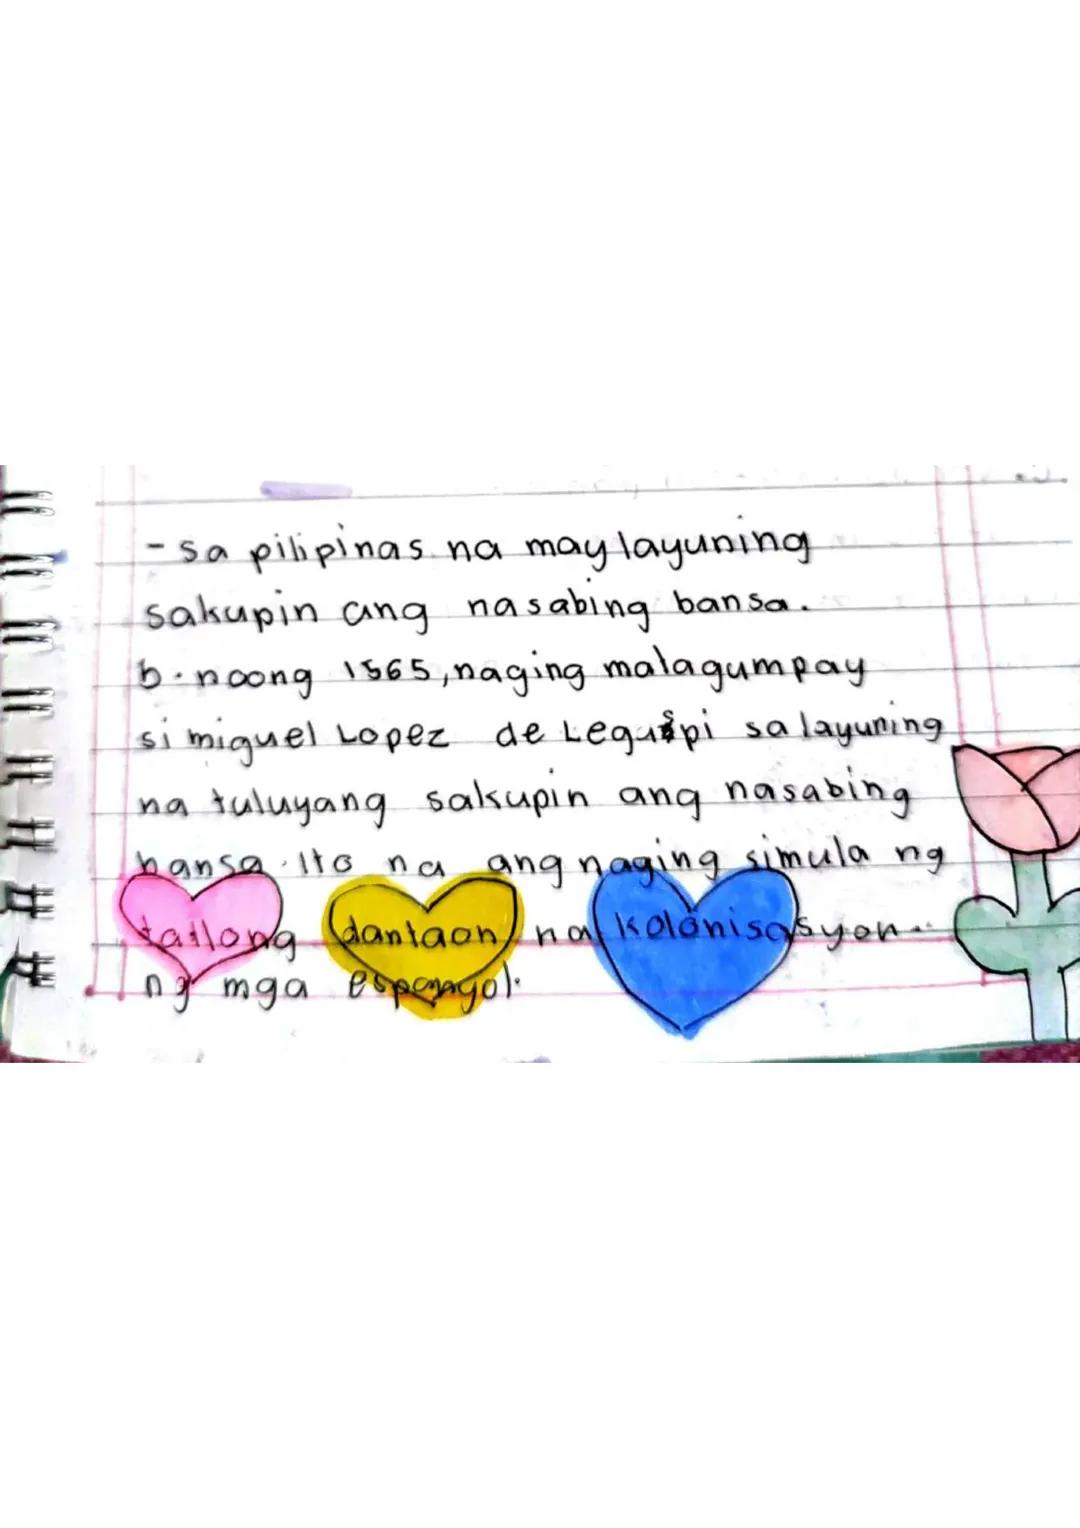 - sa pilipinas na may layuning
sakupin ang nasabing bansa.
b. noong 1565, naging malagumpay
si miguel Lopez de Leguspi sa layuning
na tuluyang sakupin ang nasabing
bansa. Ito na ang naging simula ng
tatlong dantaon na kolonisasyon
ng mga espanyol.